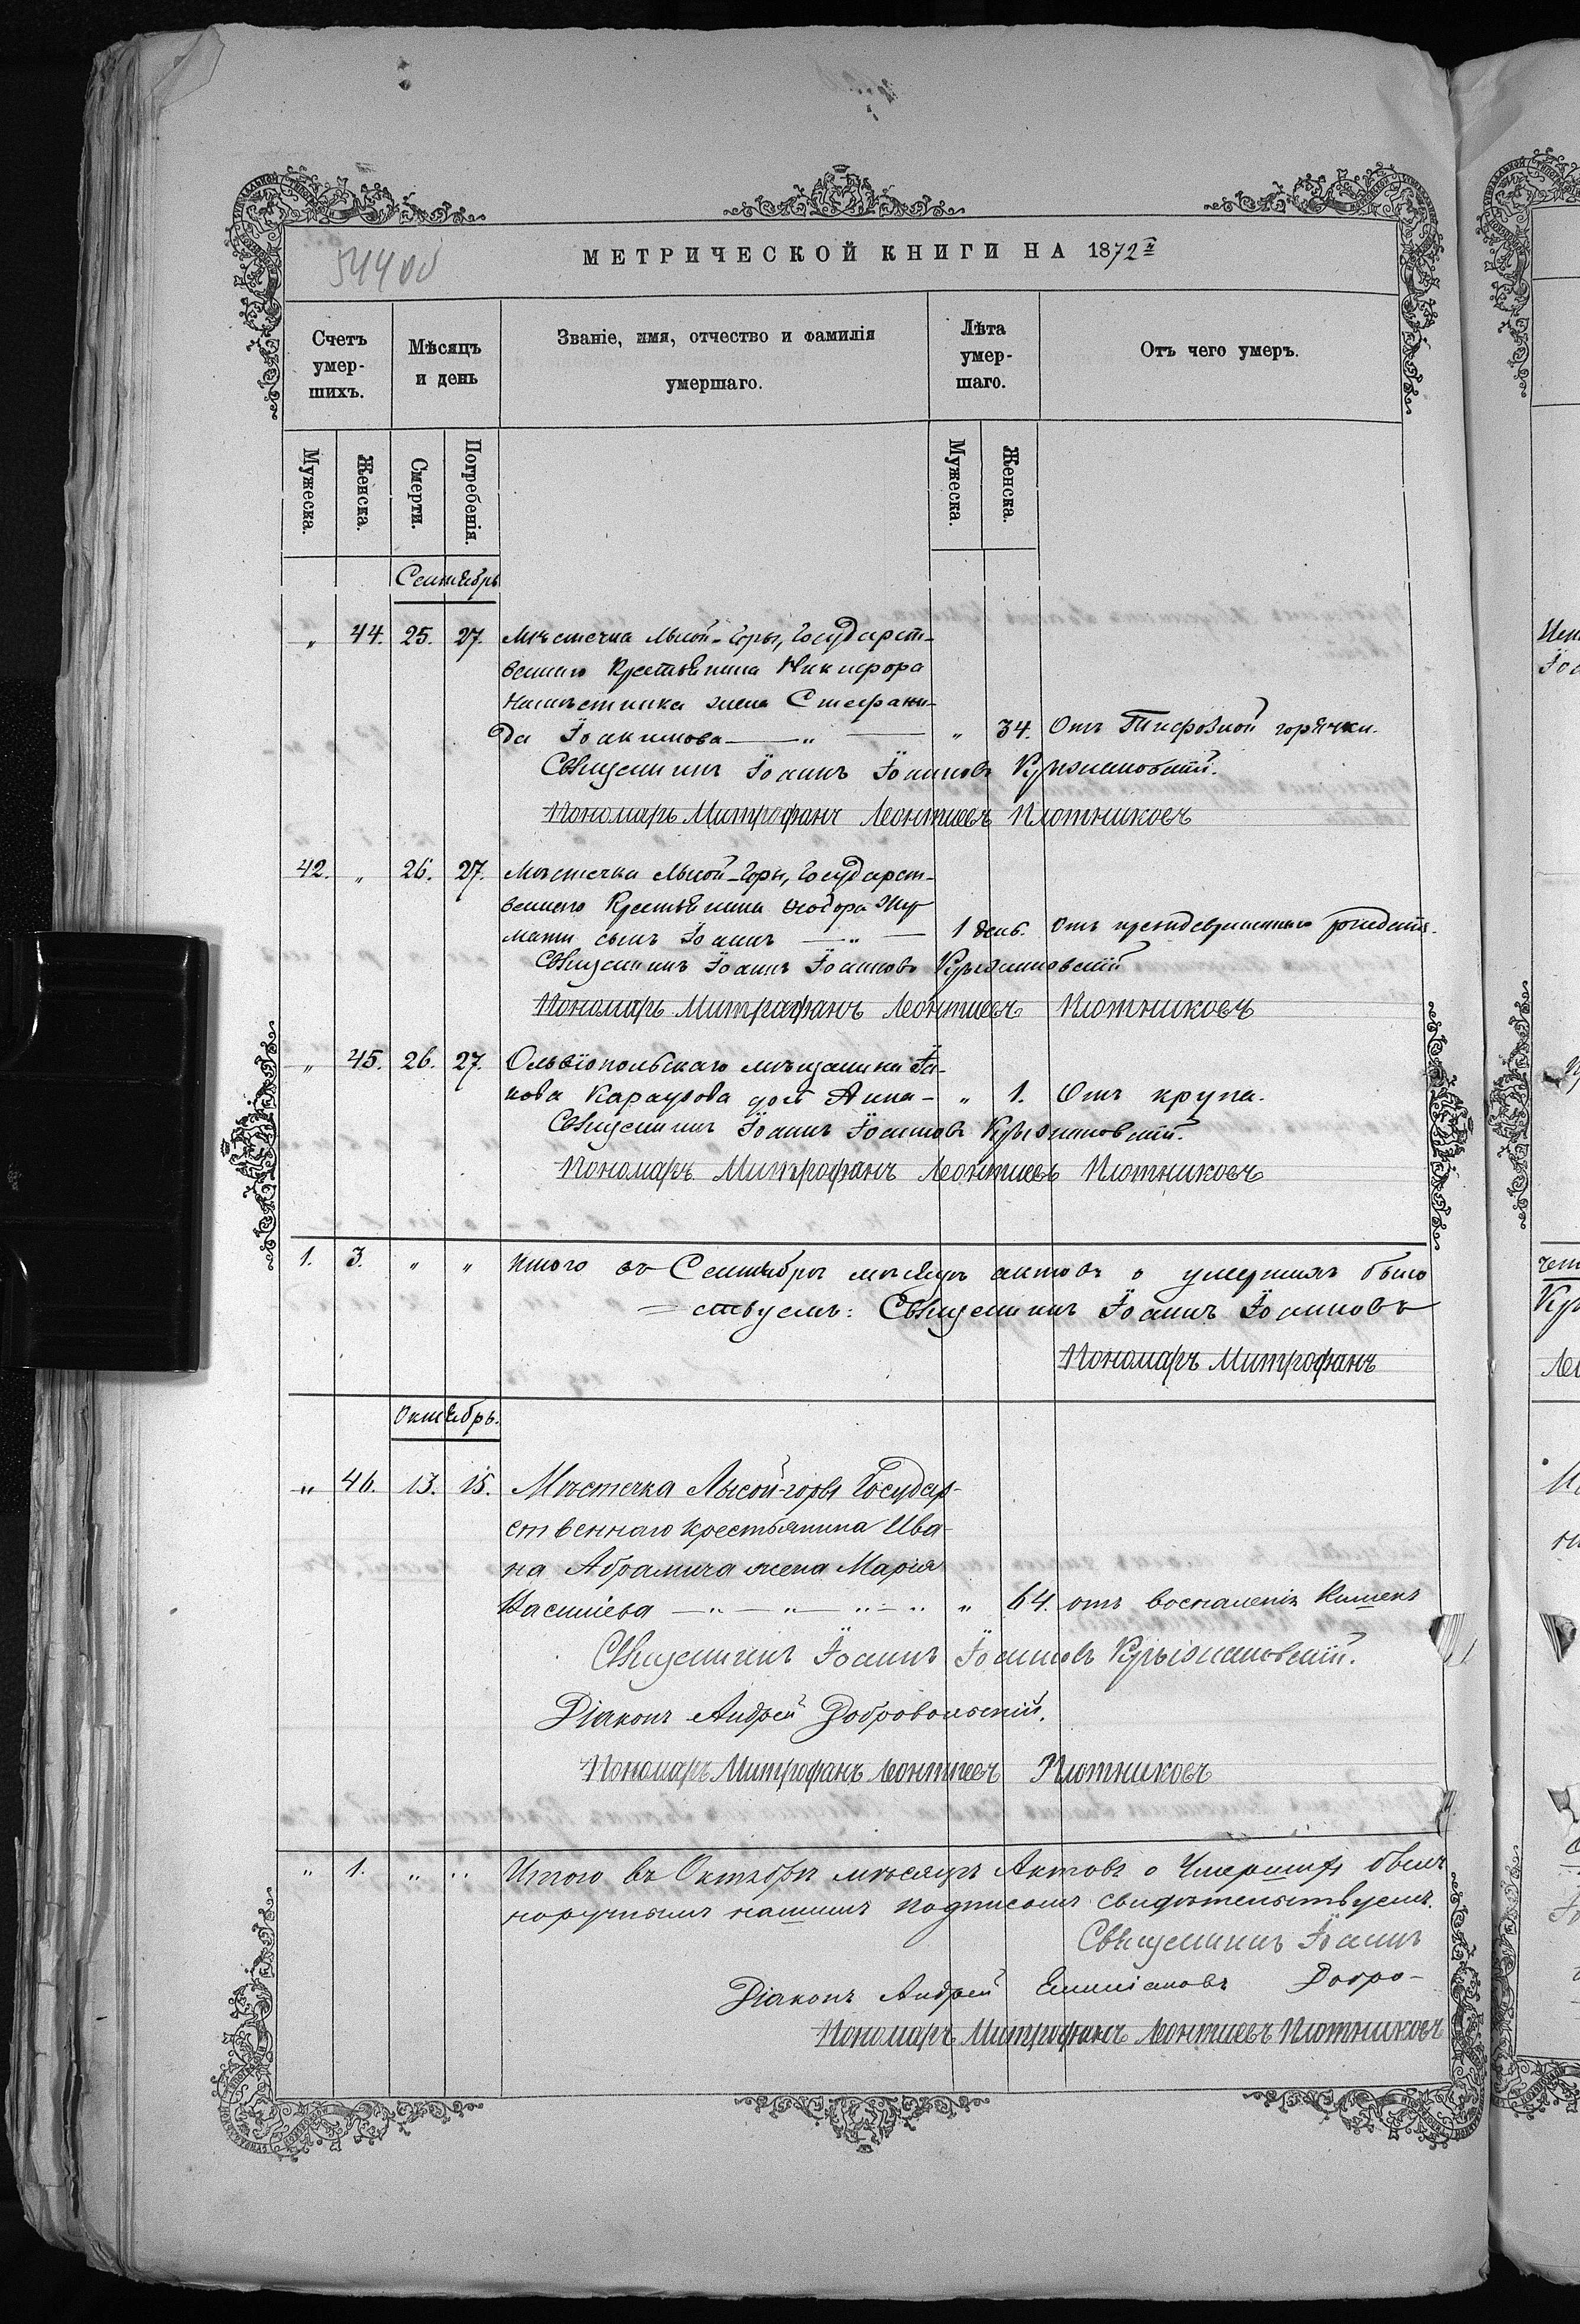 МЕТРИЧЕСКОЙ КНИГИ НА 1872
Счетъ умер- шихъ.
Мѣсяцъ и день
Званіе, имя, отчество и фамилія
умершаго.
Лѣта умер- шаго.
Отъ чего умеръ.
Мужеска.
Женска.
Смерти.
Погребенія.
Мужеска.
Женска.
Сентябрь
„ 44. 25. 27. Мѣстечка Лысой-Горы, Государст-
веннаго Крестьянина Никифора
жена Стефани-
да Іоакимова — „ — „ 34. Отъ Тифозной горячки.
Священникъ Іоаннъ Іоанновъ Крыжановскій.
Пономарь Митрофанъ Леонтиевъ Плотниковъ
42. „ 26. 27. Мѣстечка Лысой-Горы, Государст-
веннаго Крестьянина Ѳеодора
сынъ Іоаннъ — „ — 1 день. Отъ преждевременнаго рожденія.
Священникъ Іоаннъ Іоанновъ Крыжановскій
Пономарь Митрофанъ Леонтиевъ Плотниковъ
„ 45. 26. 27. Ольвіопольскаго мѣщанина Іа-
кова Караулова дочь Анна — „ 1. Отъ крупа.
Священникъ Іоаннъ Іоанновъ Крыжановскій.
Пономарь Митрофанъ Леонтиевъ Плотниковъ
1. 3. „ „ Итого въ Сентябрѣ мѣсяцѣ актовъ о умершихъ было
= ствуемъ: Священникъ Іоаннъ Іоанновъ
Пономарь Митрофанъ
Октябрь.
„ 46. 13. 15. Мѣстечка Лысой-горы Государ-
ственнаго крестьянина Ива-
на Абрамича жена Марія
Василіева — „ — „ — „ — „ „ 64. отъ воспаленія Кишекъ
Священникъ Іоаннъ Іоанновъ Крыжановскій.
Діаконъ Андрей Добровольскій.
Пономарь Митрофанъ Леонтиевъ Плотниковъ
„ 1. „ „ Итого въ Октябрѣ мѣсяцѣ Актовъ о Умершихъ было
норучнымъ нашимъ подписомъ свидѣтельствуемъ.
Священникъ Іоаннъ
Діаконъ Андрей Емиліановъ Добро-
Пономарь Митрофанъ Леонтиевъ Плотниковъ